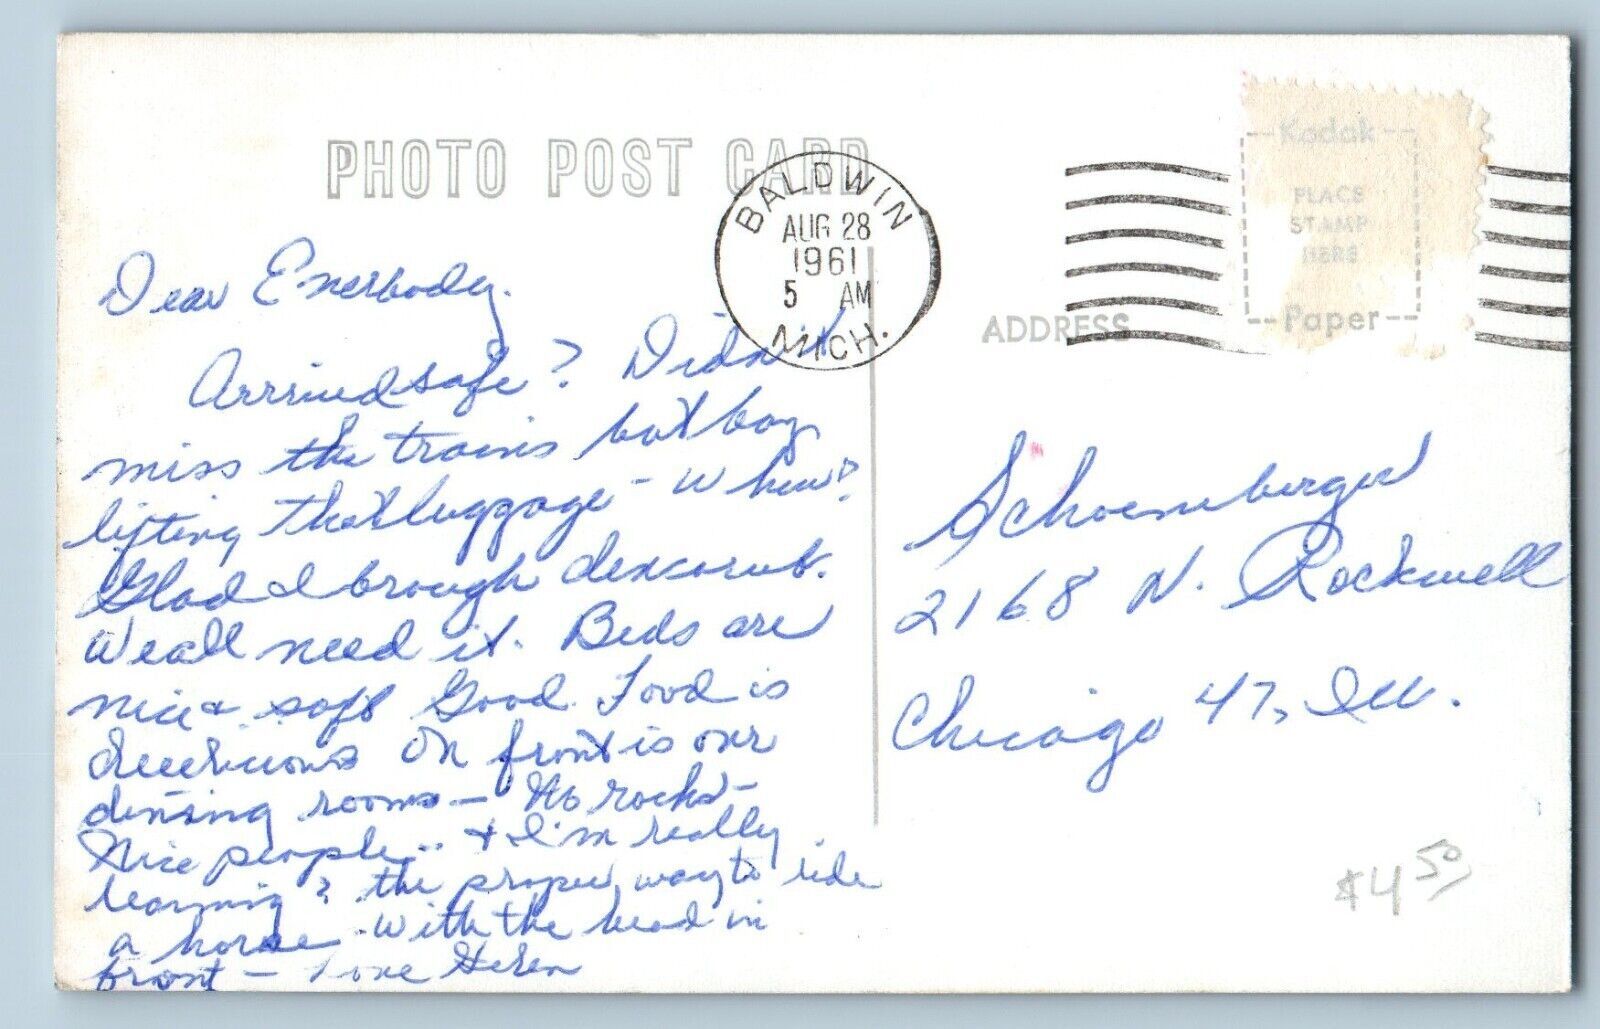 PHOTO POST CARD
BALDWIN
AUG 28
1961
5 AM
MICH.
Kodak
PLACE
STAMP
HERE
Paper
ADDRESS
Dear Enerbody.
Arrived safe? Didn't
miss the trains but boy
lifting that luggage - whew!
Glad I brough
We all need it. Beds are
nice & soft Good. Food is
On front is our
dinning rooms - No rocks -
Nice people.. & I'm really
learning? the proper way to ride
a horse - with the head in
front - Love Helen
Schoenberger
2168 N. Rockwell
Chicago 47, Ill.
$4.50